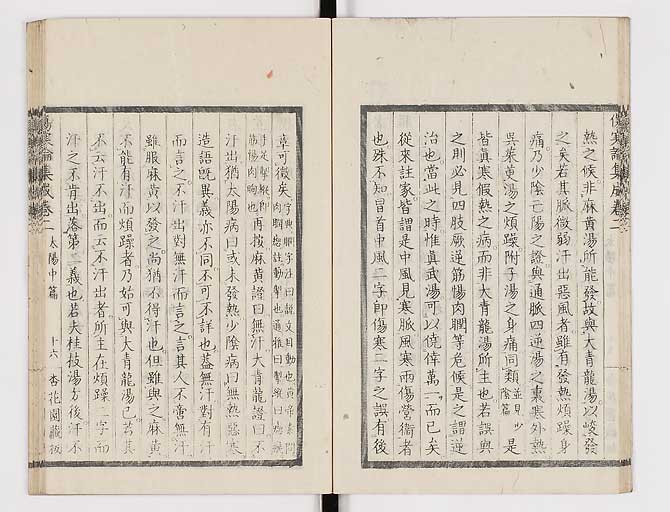 熱之候非麻黃湯所能發故與大青龍湯以峻發
之矣若其脉微弱汗出惡風者雖有發熱煩躁身
痛乃少陰亡陽之證與通脉四逆湯之裏寒外熱
吳茱萸湯之煩躁附子湯之身痛同類並見少陰篇是
皆眞寒假熱之病而非大青龍湯所主也若誤與
之則必見四肢厥逆筋惕肉瞤等危候是之謂逆
治也當此之時惟眞武湯可以僥倖萬一而已矣
從來註家皆謂是中風見寒脉風寒兩傷營衞者
也殊不知冒首中風二字卽傷寒二字之誤有後
傷寒論集成卷二
章可徵矣
再按麻黃證曰無汗大青龍證曰不
汗出猶太陽病曰或未發熱少陰病曰無熱惡寒
造語旣異義亦不同不可不詳也蓋無汗對有汗
而言之不汗出對無汗而言之言其人不啻無汗
雖服麻黃以發之尚猶不得汗也但雖與之麻黃
不能有汗而煩躁者乃始可與大青龍湯已若其
不云汗不出而云不汗出者所主在煩躁二字而
汗之不肯出者第二義也若夫桂枝湯方後汗不
傷寒論集成卷二 太陽中篇 十六 杏花園藏板